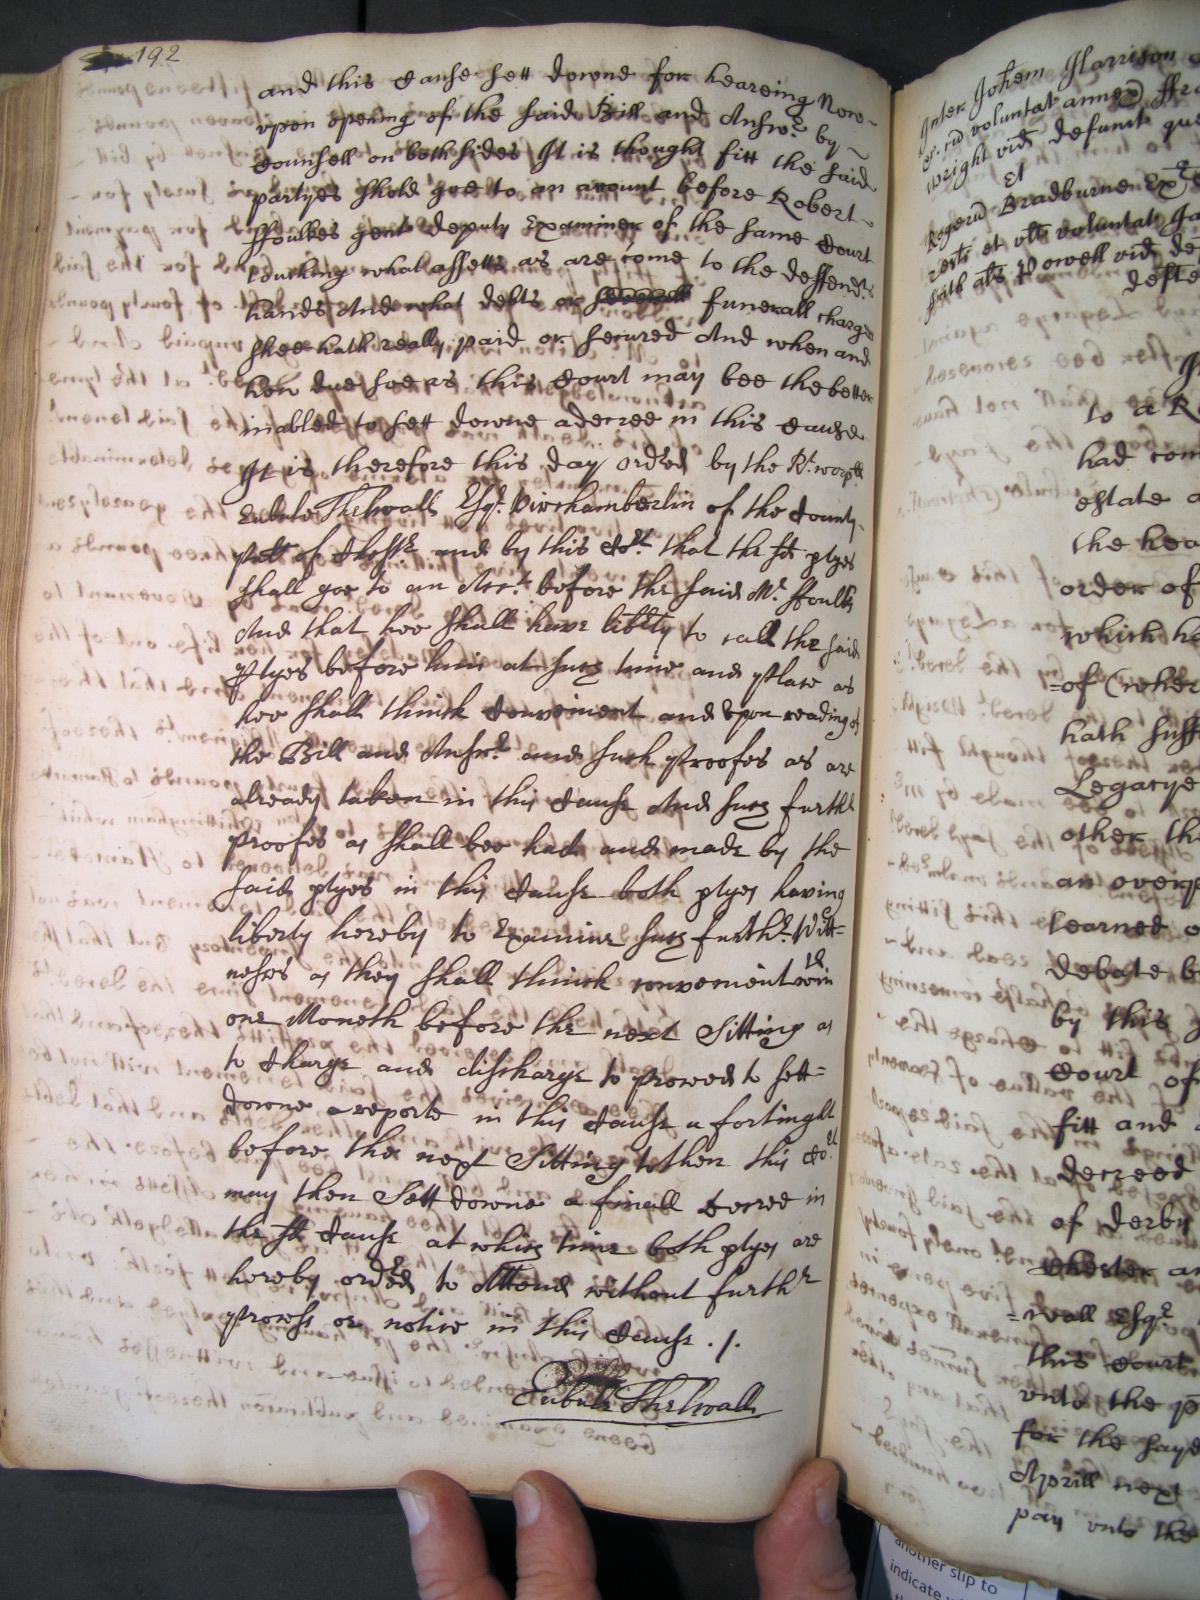 192
and this Cause sett downe for heareing Now
vpon opening of the said Bill and Answr. by
Counsell on both sides It is thought fitt the said
partyes shold goe to an acount before Robert
ffoulkes gent deputy Examiner of the same Court
touching what assetts as are come to the deffendts
hands And what debts or funerall charges
shee hath really paid or secured And when and
how due soe as this Court may bee the better
inabled to sett downe a decree in this Cause
It is therefore this day ordred by the Rt. worpll
Eubule Thelwall Esqr. Vicechamberlin of the County
pall of Chestr and by this Cort. that the sd ptyes
shall goe to an Acct. before the said Mr. ffoulks
And that hee shall have libtty to call the said
ptyes before him at such time and place as
hee shall think Convenient and vpon reading of
the Bill and Answr. and such proofes as are
already taken in this Cause And such furthr
proofes as shall bee had and made by the
said ptyes in this Cause both ptyes having
liberty hereby to Examine such furthr. Witt=
nesses as they shall think convenient wthin
one Moneth before the next Sitting as
to Charge and discharge to proceed to sett=
downe a reporte in this Cause a fortinght
before the next Sitting to then this Cort.
may then Sett downe a finall decree in
the sd Cause at which time both ptyes are
hereby ordred to Attend without furthr
process or notice in this Cause ./.
Eubule Thelwall
Inter Johem Harrison
voluntat annex
wright vid defunct
Et
Rogerū Bradburne Exr
voluntat
als Powell vid
to a
had com
estate
the hea
order of
which ha
=of (wher
hath suff
Legacye
other th
an overp
learned
debate b
by this
Court of
fitt and
decreed
of derby
Chester an
=wall Esqr.
this Court
vnto the
for the saye
Aprill next
pay vnto the
another slip to
indicate